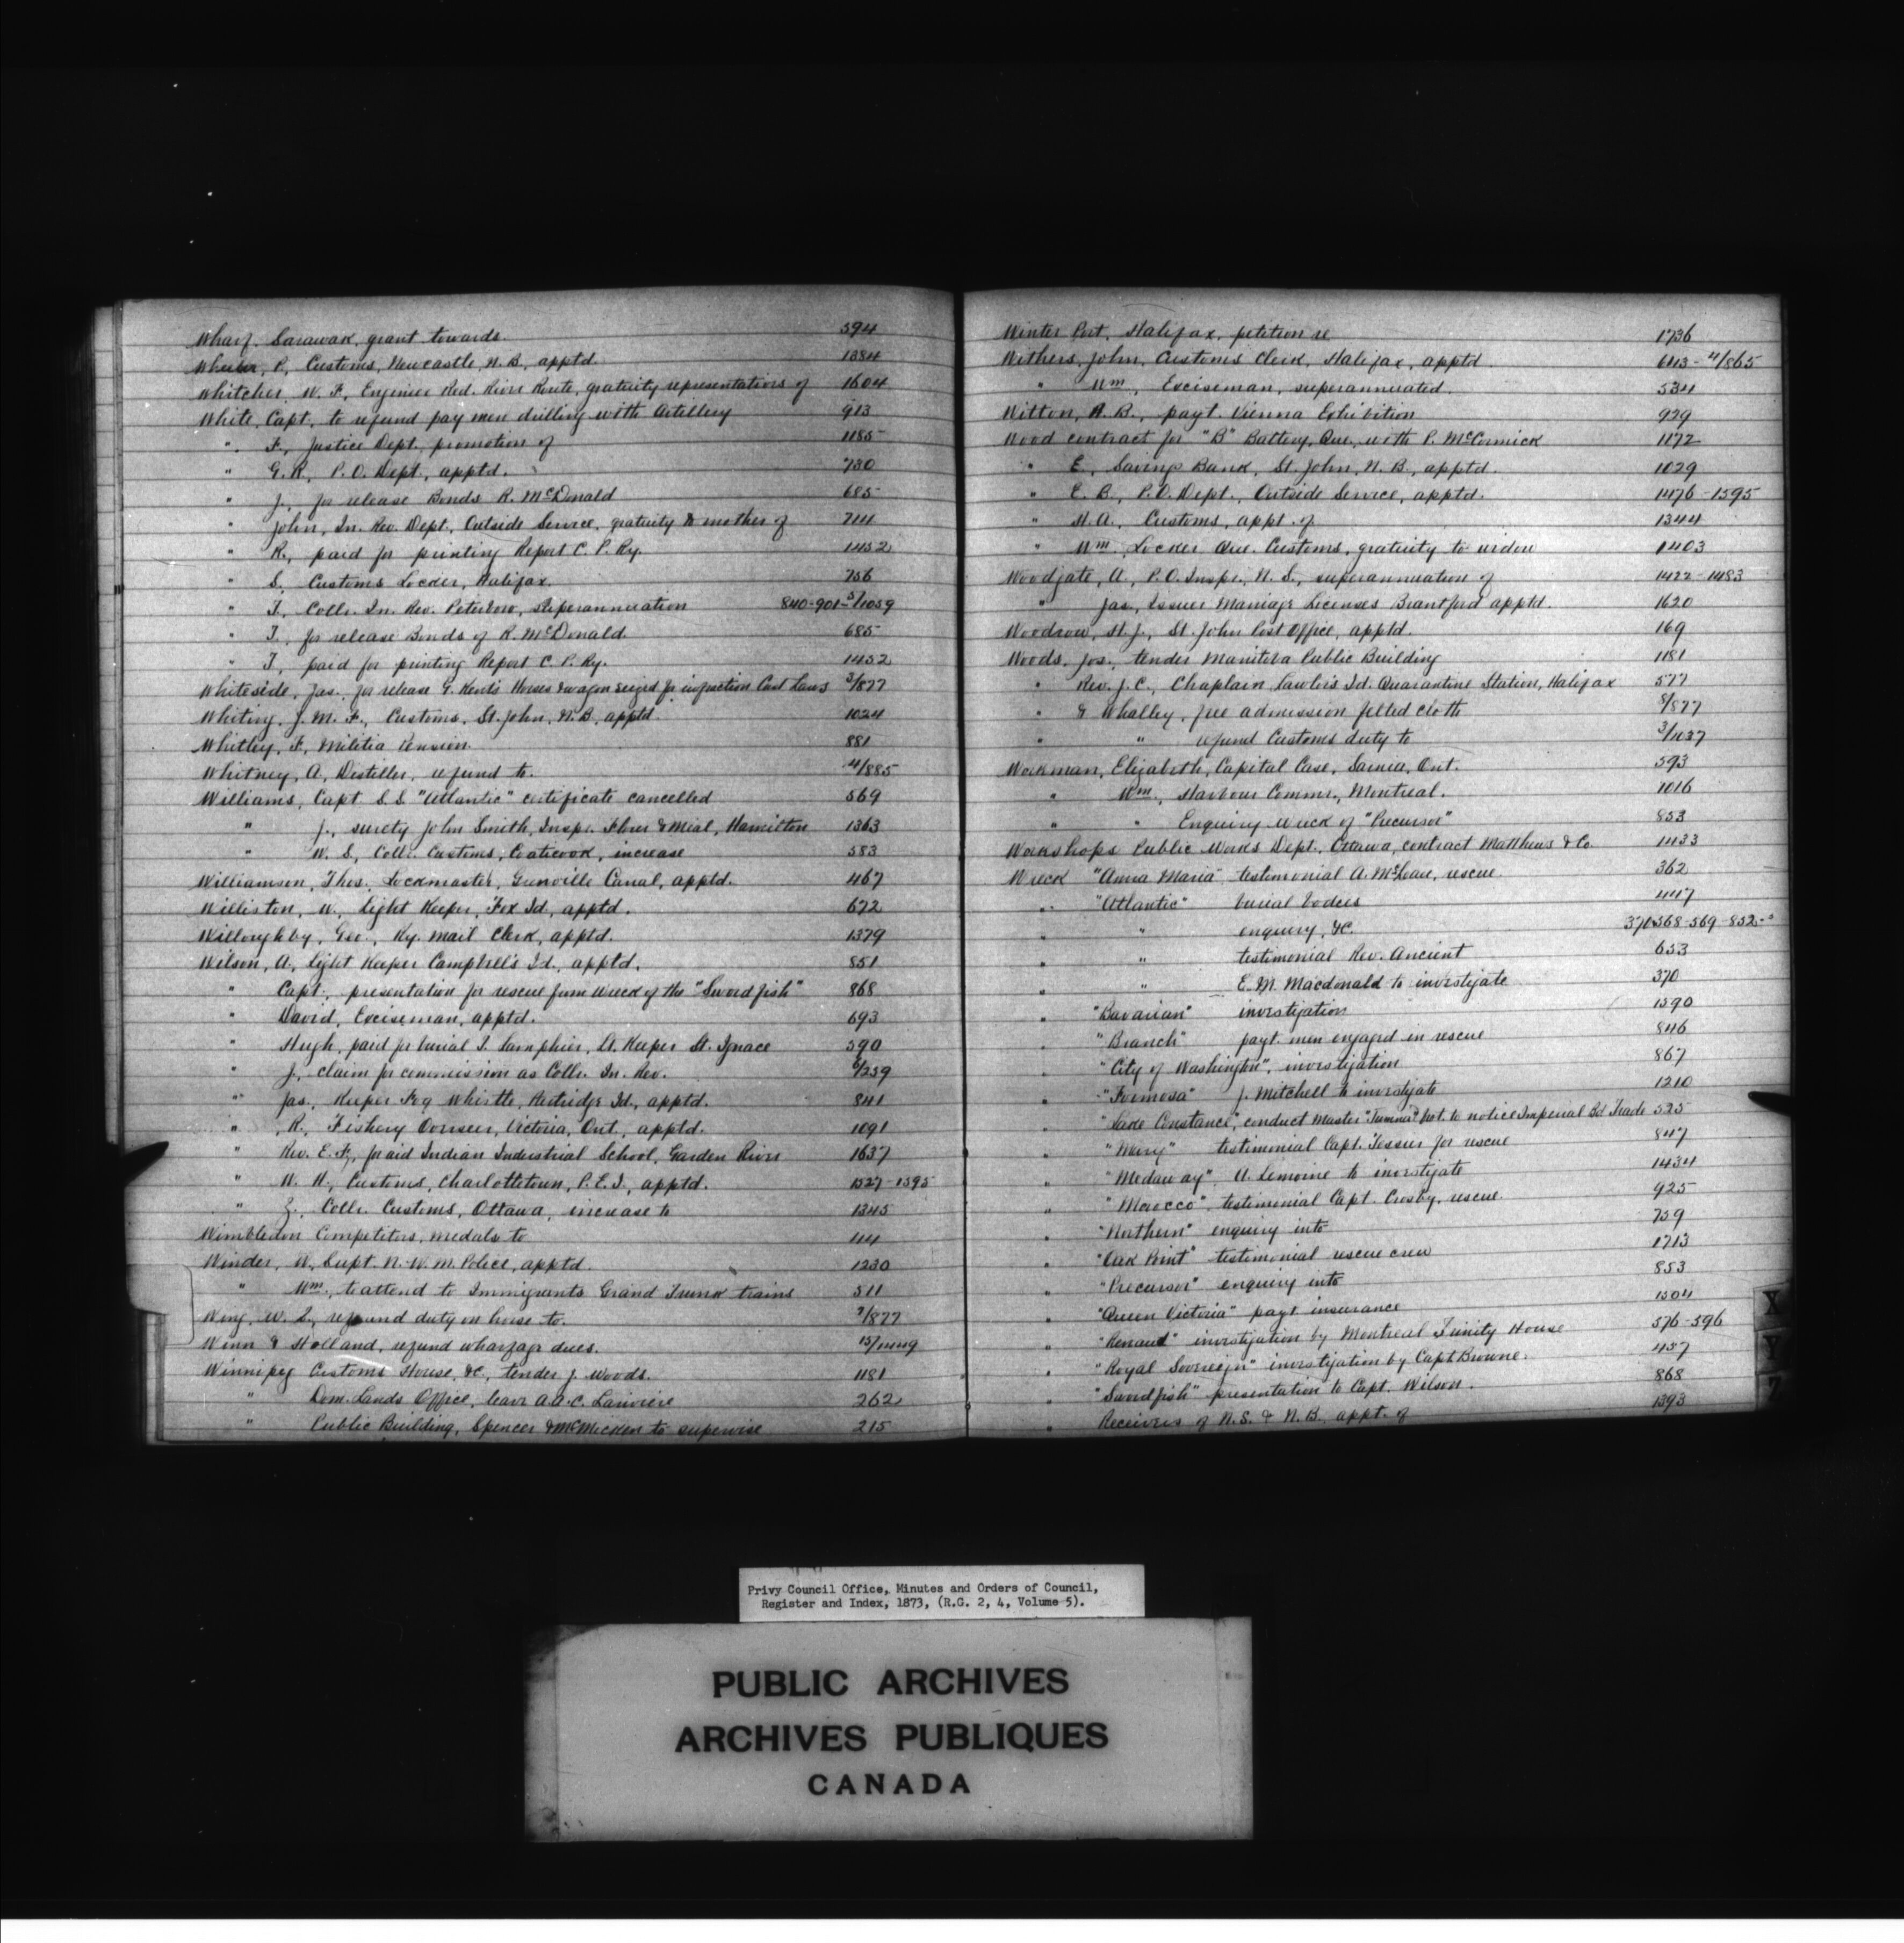 Wharf, Sarawak, grant towards. 594
Wheeler, P., Customs, Newcastle, N.B., apptd. 1384
Whitcher, W. F., Engineer Red River Route, gratuity representatives of 1604
White, Capt. to refund pay men drilling with Artillery 913
" F., Justice Dept., promotion of 1185
" G. R., P.O. Dept., apptd. 730
" J., for release Bonds R. McDonald 685
" John, In. Rev. Dept., Outside Service, gratuity to mother of 714
" R., paid for printing Report C. P. Ry. 1452
" S., Customs Locker, Halifax. 756
" T., Collr. In. Rev. Peterboro, Superannuation 840-901-5/1059
" T., for release Bonds of R. McDonald. 685
" T., paid for printing Report C. P. Ry. 1452
Whiteside, Jas., for release G. Kent's Horses & wagon seized for infraction Cust Laws 3/877
Whiting, J. M. F., Customs, St. John, N.B., apptd. 1024
Whitley, F., Militia Pension. 881
Whitney, A., Distiller, refund to. 4/885
Williams, Capt. S.S. "Atlantic" certificate cancelled 569
" J., surety John Smith, Inspr. Flour & Meal, Hamilton 1363
" W. S., Collr. Customs, Coaticook, increase 583
Williamson, Thos., Lockmaster, Grenville Canal, apptd. 467
Williston, W., Light Keeper, Fox Id., apptd. 672
Willoughby, Geo., Ry. Mail Clerk, apptd. 1379
Wilson, A., Light Keeper Campbell's Id., apptd. 851
" Capt., presentation for rescue from wreck of the "Swordfish" 868
" David, Exciseman, apptd. 693
" Hugh, paid for burial I. Lamphier, Lt. Keeper St. Ignace 590
" J., claim for commission as Collr. In. Rev. 6/239
" Jas., Keeper Fog Whistle, Partridge Id., apptd. 841
" R., Fishery Overseer, Victoria, Ont., apptd. 1091
" Rev. E. F., for aid Indian Industrial School, Garden River 1637
" W. H., Customs, Charlottetown, P.E.I., apptd. 1527-1595
" Z., Collr. Customs, Ottawa, increase to 1345
Wimbledon Competitors, medals to 44
Winder, W., Supt. N.W.M. Police, apptd. 1230
" Wm., to attend to Immigrants Grand Trunk trains 511
Wing, W. L., refund duty on horse to. 7/877
Winn & Holland, refund wharfage dues. 15/1449
Winnipeg Customs House, &c., tender J. Woods. 1181
" Dom. Lands Office, leave A.A.C. Lariviere 262
" Public Building, Spencer & McMicken to supervise 215
Winter Port, Halifax, petition re 1736
Withers, John, Customs Clerk, Halifax, apptd. 643-4/865
" Wm., Exciseman, superannuated. 534
Witton, H. B., payt. Vienna Exhibition 979
Wood contract for "B" Battery, Que., with P. McCormick 1172
" E., Savings Bank, St. John, N.B., apptd. 1029
" E. B., P.O. Dept., Outside Service, apptd. 1476-1595
" H. A., Customs, appt. of 1344
" Wm., Locker Que. Customs, gratuity to widow 1403
Woodgate, A., P.O. Inspr., N.S., superannuation of 1422-1483
" Jas., Issuer Marriage Licenses Brantford apptd. 1620
Woodrow, H. J., St. John Post Office, apptd. 169
Woods, Jos., tender Manitoba Public Building 1181
" Rev. J. C., Chaplain Lawlor's Id. Quarantine Station, Halifax 577
" & Whalley, free admission felted cloth 8/877
" " refund Customs duty to 3/1137
Workman, Elizabeth, Capital Case, Sarnia, Ont. 593
" Wm., Harbour Commr., Montreal. 1016
" " Enquiry wreck of "Precursor" 853
Workshops Public Works Dept., Ottawa, contract Matthews & Co. 1133
Wreck "Anna Maria" testimonial A. McLean, rescue. 362
" "Atlantic" burial bodies 447
" " enquiry, &c. 370-568-569-852
" " testimonial Rev. Ancient 653
" " E. M. Macdonald to investigate 370
" "Bavarian" investigation 1590
" "Branch" payt. men engaged in rescue 846
" "City of Washington", investigation 867
" "Formosa" J. Mitchell to investigate 1210
" "Lake Constance", conduct Master brt. to notice Imperial Bd. Trade 525
" "Mary" testimonial Capt. Tessier for rescue 847
" "Medway", A. Lemoine to investigate 1434
" "Morocco", testimonial Capt. Crosby, rescue. 925
" "Northern" enquiry into 759
" "Oak Point" testimonial rescue crew 1713
" "Precursor" enquiry into 853
" "Queen Victoria" payt. insurance 1504
" "Renaud" investigation by Montreal Trinity House 576-596
" "Royal Sovereign" investigation by Capt. Browne. 457
" "Swordfish" presentation to Capt. Wilson. 868
" Receivers of N.S. & N.B., appt. of 1393
X
Y
Z
Privy Council Office, Minutes and Orders of Council,
Register and Index, 1873, (R.G. 2, 4, Volume 5).
PUBLIC ARCHIVES
ARCHIVES PUBLIQUES
CANADA